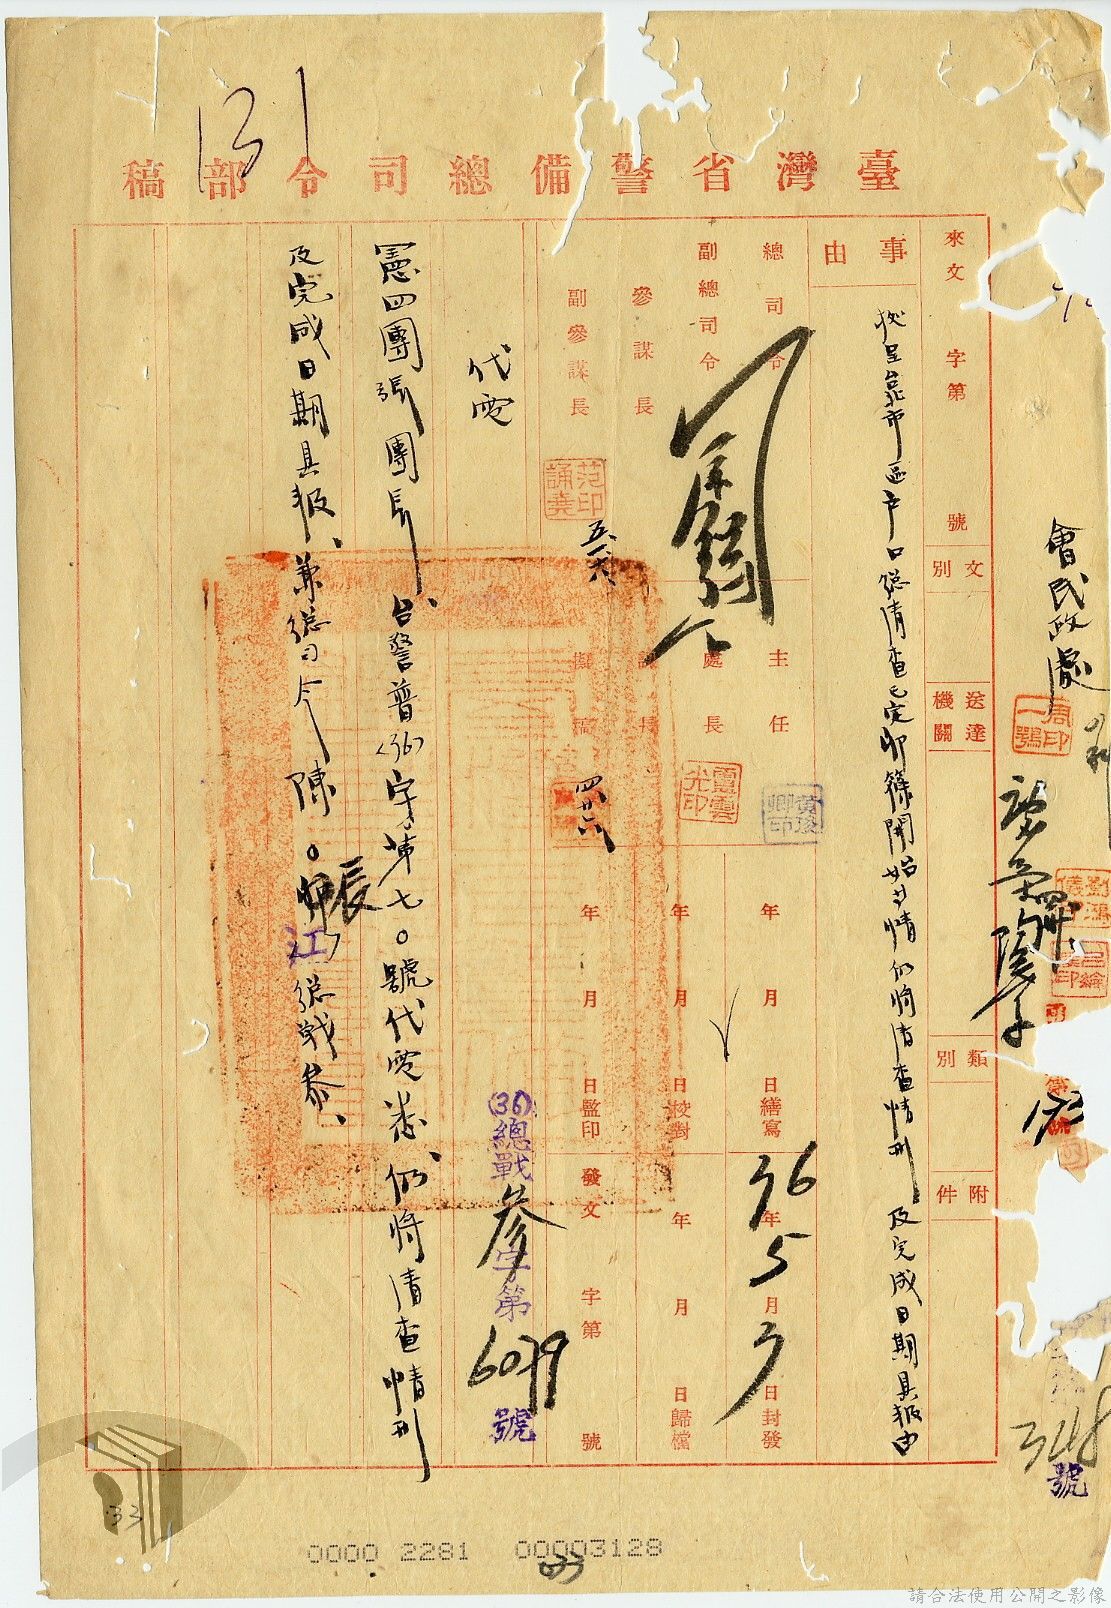 131
臺灣省警備總司令部稿
會民政處
周印一鶚
號
來文 字第 號
文別
送達機關
類別
附件
事由
據呈台北市區戶口總清查已定卯篠開始等情仍將清查情形及完成日期具報由
總司令
副總司令
參謀長
副參謀長
范印誦堯
五、六
主任
處長
課長
擬稿
四、廿八
年 月 日繕寫
年 月 日校對
年 月 日監印
36年5月3日封發
年 月 日歸檔
發文 字第 號
(36)總戰參字第6079號
代電
憲四團張團長、台警普(36)字第七〇號代電悉、仍將清查情形
及完成日期具報、兼總司令陳〇辰江總戰參、
33
0000 2281 00003128
033
請合法使用公開之影像